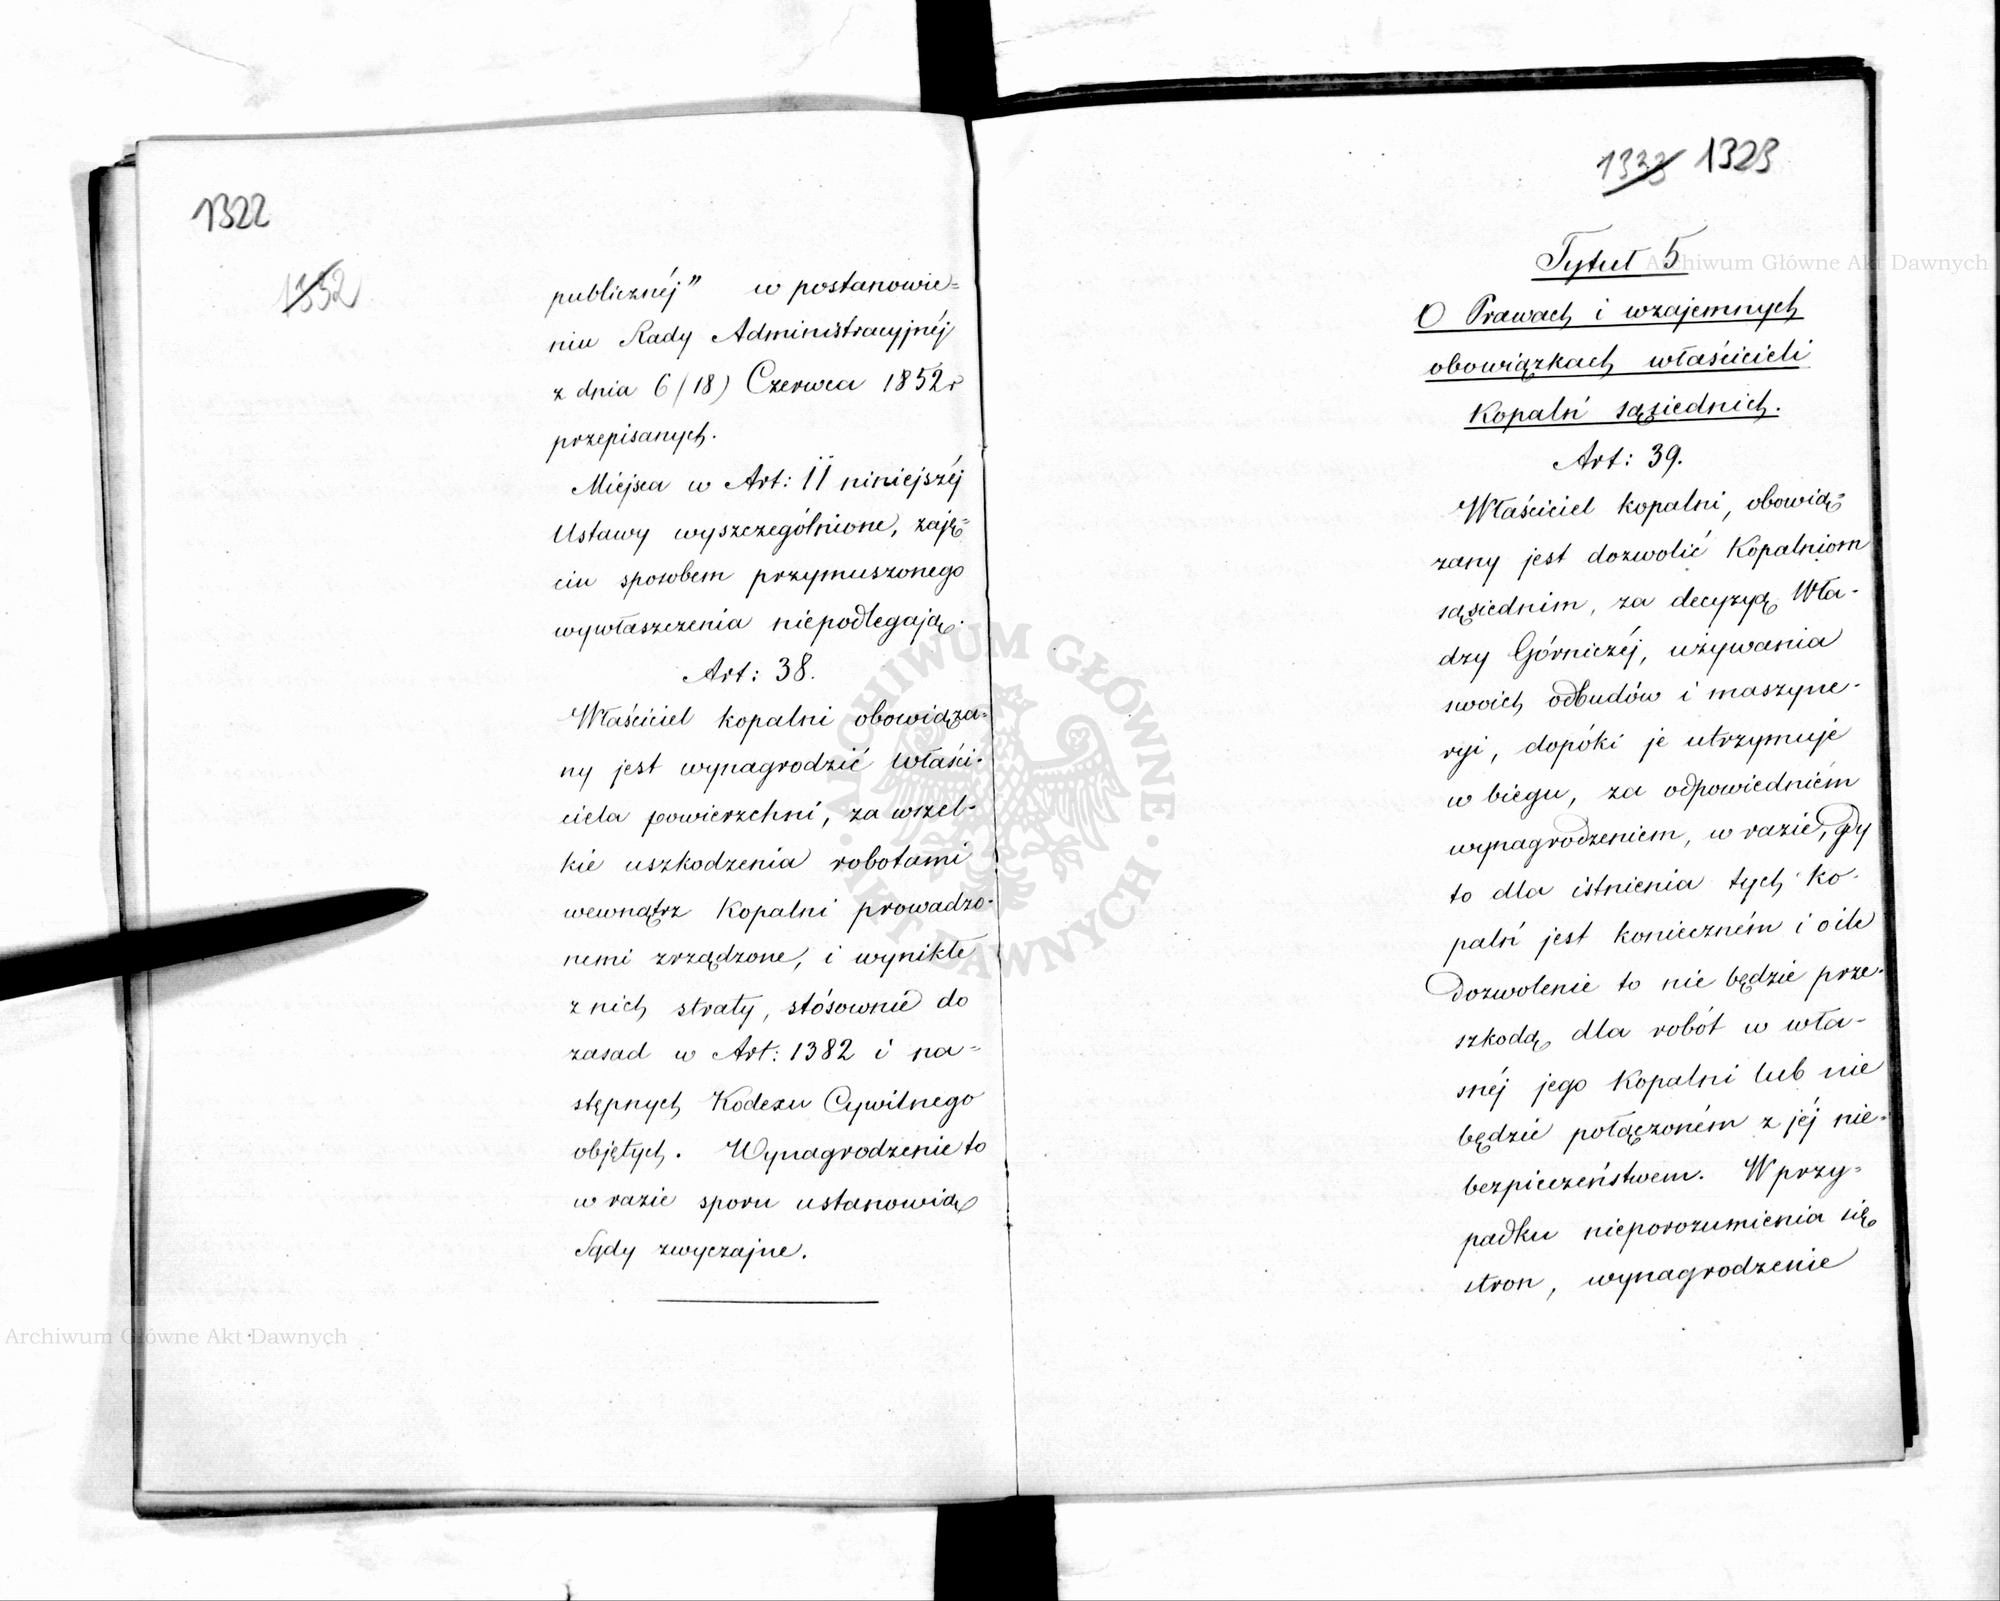 1322
1332
publicznéj" w postanowie=
niu Rady Administracyjnéj
z dnia 6/18) Czerwca 1852 r
przepisanych.
Miejsca w Art: 11 niniejszéj
Ustawy wyszczególnione, zaję=
ciu sposobem przymuszonego
wywłaszczenia niepodlegają.
Art: 38.
Właściciel kopalni obowiąza=
ny jest wynagrodzić właści-
ciela powierzchni, za wszel-
kie uszkodzenia robotami
wewnątrz Kopalni prowadzo-
nemi zrządzone, i wynikłe
z nich straty, stósownie do
zasad w Art: 1382 i na=
stępnych Kodexu Cywilnego
objętych. Wynagrodzenie to
w razie sporu ustanowią
Sądy zwyczajne.
1333 1323
Tytuł 5
O Prawach i wzajemnych
obowiązkach właścicieli
Kopalń sąsiednich.
Art: 39.
Właściciel kopalni, obowią=
zany jest dozwolić Kopalniom
sąsiednim, za decyzyą Wła-
dzy Górniczéj, używania
swoich odbudów i maszyne-
ryi, dopóki je utrzymuje
w biegu, za odpowiedniém
wynagrodzeniem, w razie, gdy
to dla istnienia tych Ko-
palń jest konieczném i o ile
Dozwolenie to nie będzie prze-
szkodą dla robót w wła-
snéj jego Kopalni lub nie
będzie połączoném z jéj nie-
bezpieczeństwem. W przy-
padku nieporozumienia się
stron, wynagrodzenie
Archiwum Główne Akt Dawnych
ARCHIWUM GŁÓWNE AKT DAWNYCH
Archiwum Główne Akt Dawnych